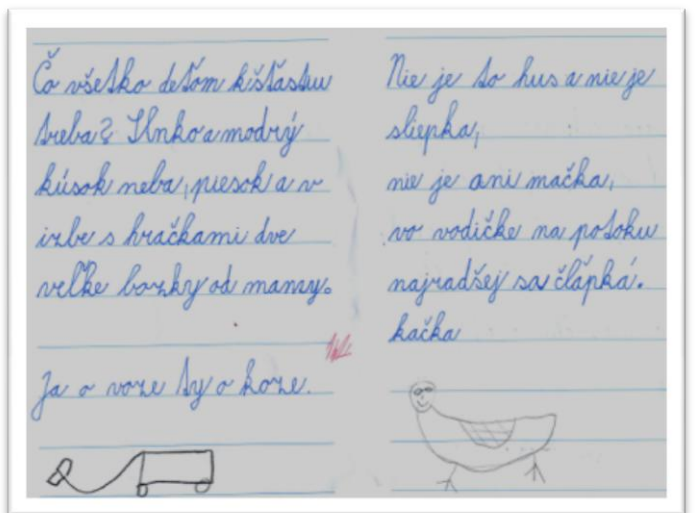 Čo všetko deťom k šťastiu
treba? Slnko a modrý
kúsok neba, piesok a v
izbe s hračkami dve
veľké bozky od mamy.
Ja o voze ty o koze.
Nie je to hus a nie je
sliepka,
nie je ani mačka,
vo vodičke na potoku
najradšej sa člápká.
kačka